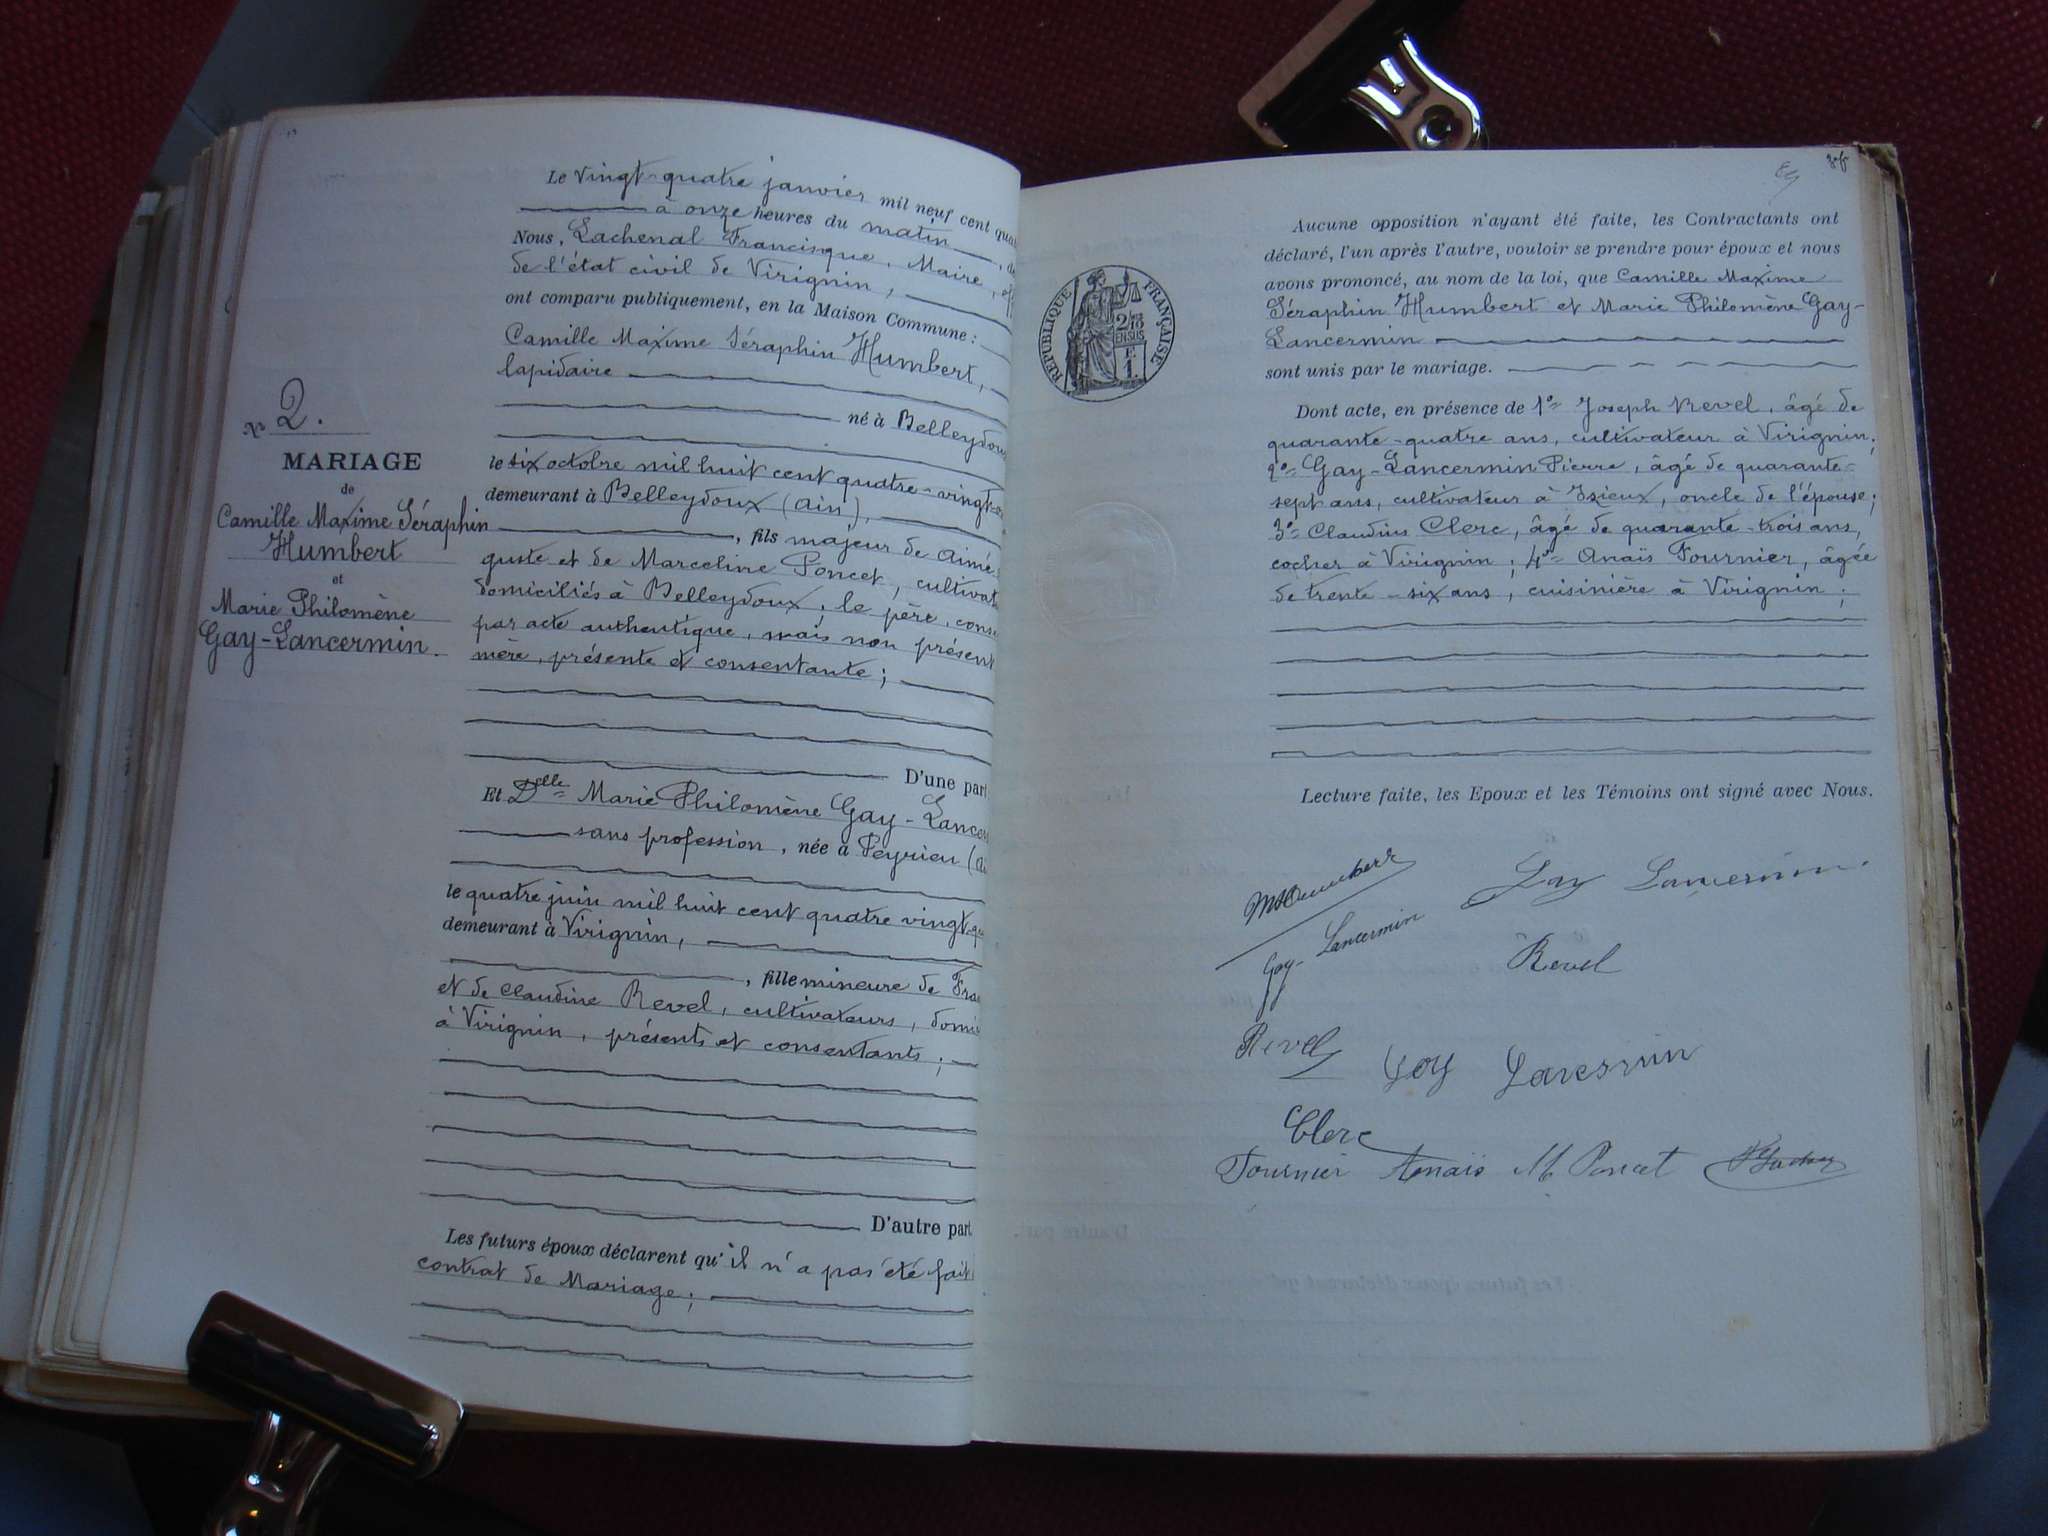 Le vingt-quatre janvier mil neuf cent qua
à onze heures du matin
Nous, Lachenal Francisque, Maire,
de l'état civil de Virignin,
ont comparu publiquement, en la Maison Commune :
Camille Maxime Séraphin Humbert,
lapidaire
né à Belleydoux
le six octobre mil huit cent quatre-vingt-
demeurant à Belleydoux (Ain),
, fils majeur de Aimé
guste et de Marceline Poncet, cultivat
domiciliés à Belleydoux, le père, conse
par acte authentique, mais non présent
mère, présente et consentante ;
D'une part
Et Delle Marie Philomène Gay-Lancer
sans profession, née à Peyrieu (Ai
le quatre juin mil huit cent quatre vingt-qu
demeurant à Virignin,
, fille mineure de Fran
et de Claudine Revel, cultivateurs, domi
à Virignin, présents et consentants ;
D'autre part
Les futurs époux déclarent qu'il n'a pas été fait
contrat de Mariage ;
No 2.
MARIAGE
de
Camille Maxime Séraphin
Humbert
et
Marie Philomène
Gay-Lancermin.
Aucune opposition n'ayant été faite, les Contractants ont
déclaré, l'un après l'autre, vouloir se prendre pour époux et nous
avons prononcé, au nom de la loi, que Camille Maxime
Séraphin Humbert et Marie Philomène Gay-
Lancermin
sont unis par le mariage.
Dont acte, en présence de 1o= Joseph Revel, âgé de
quarante-quatre ans, cultivateur à Virignin;
2o= Gay-Lancermin Pierre, âgé de quarante-
sept ans, cultivateur à Izieux, oncle de l'épouse;
3o= Claudius Clerc, âgé de quarante-trois ans,
cocher à Virignin ; 4o= Anaïs Fournier, âgée
de trente-six ans, cuisinière à Virignin ;
Lecture faite, les Epoux et les Témoins ont signé avec Nous.
MHumbert
Gay Lancermin
Gay-Lancermin
Revel
Revel
Gay Lancermin
Clerc
Fournier Anaïs M Poncet
RÉPUBLIQUE FRANÇAISE
2/10
EN SUS
1F